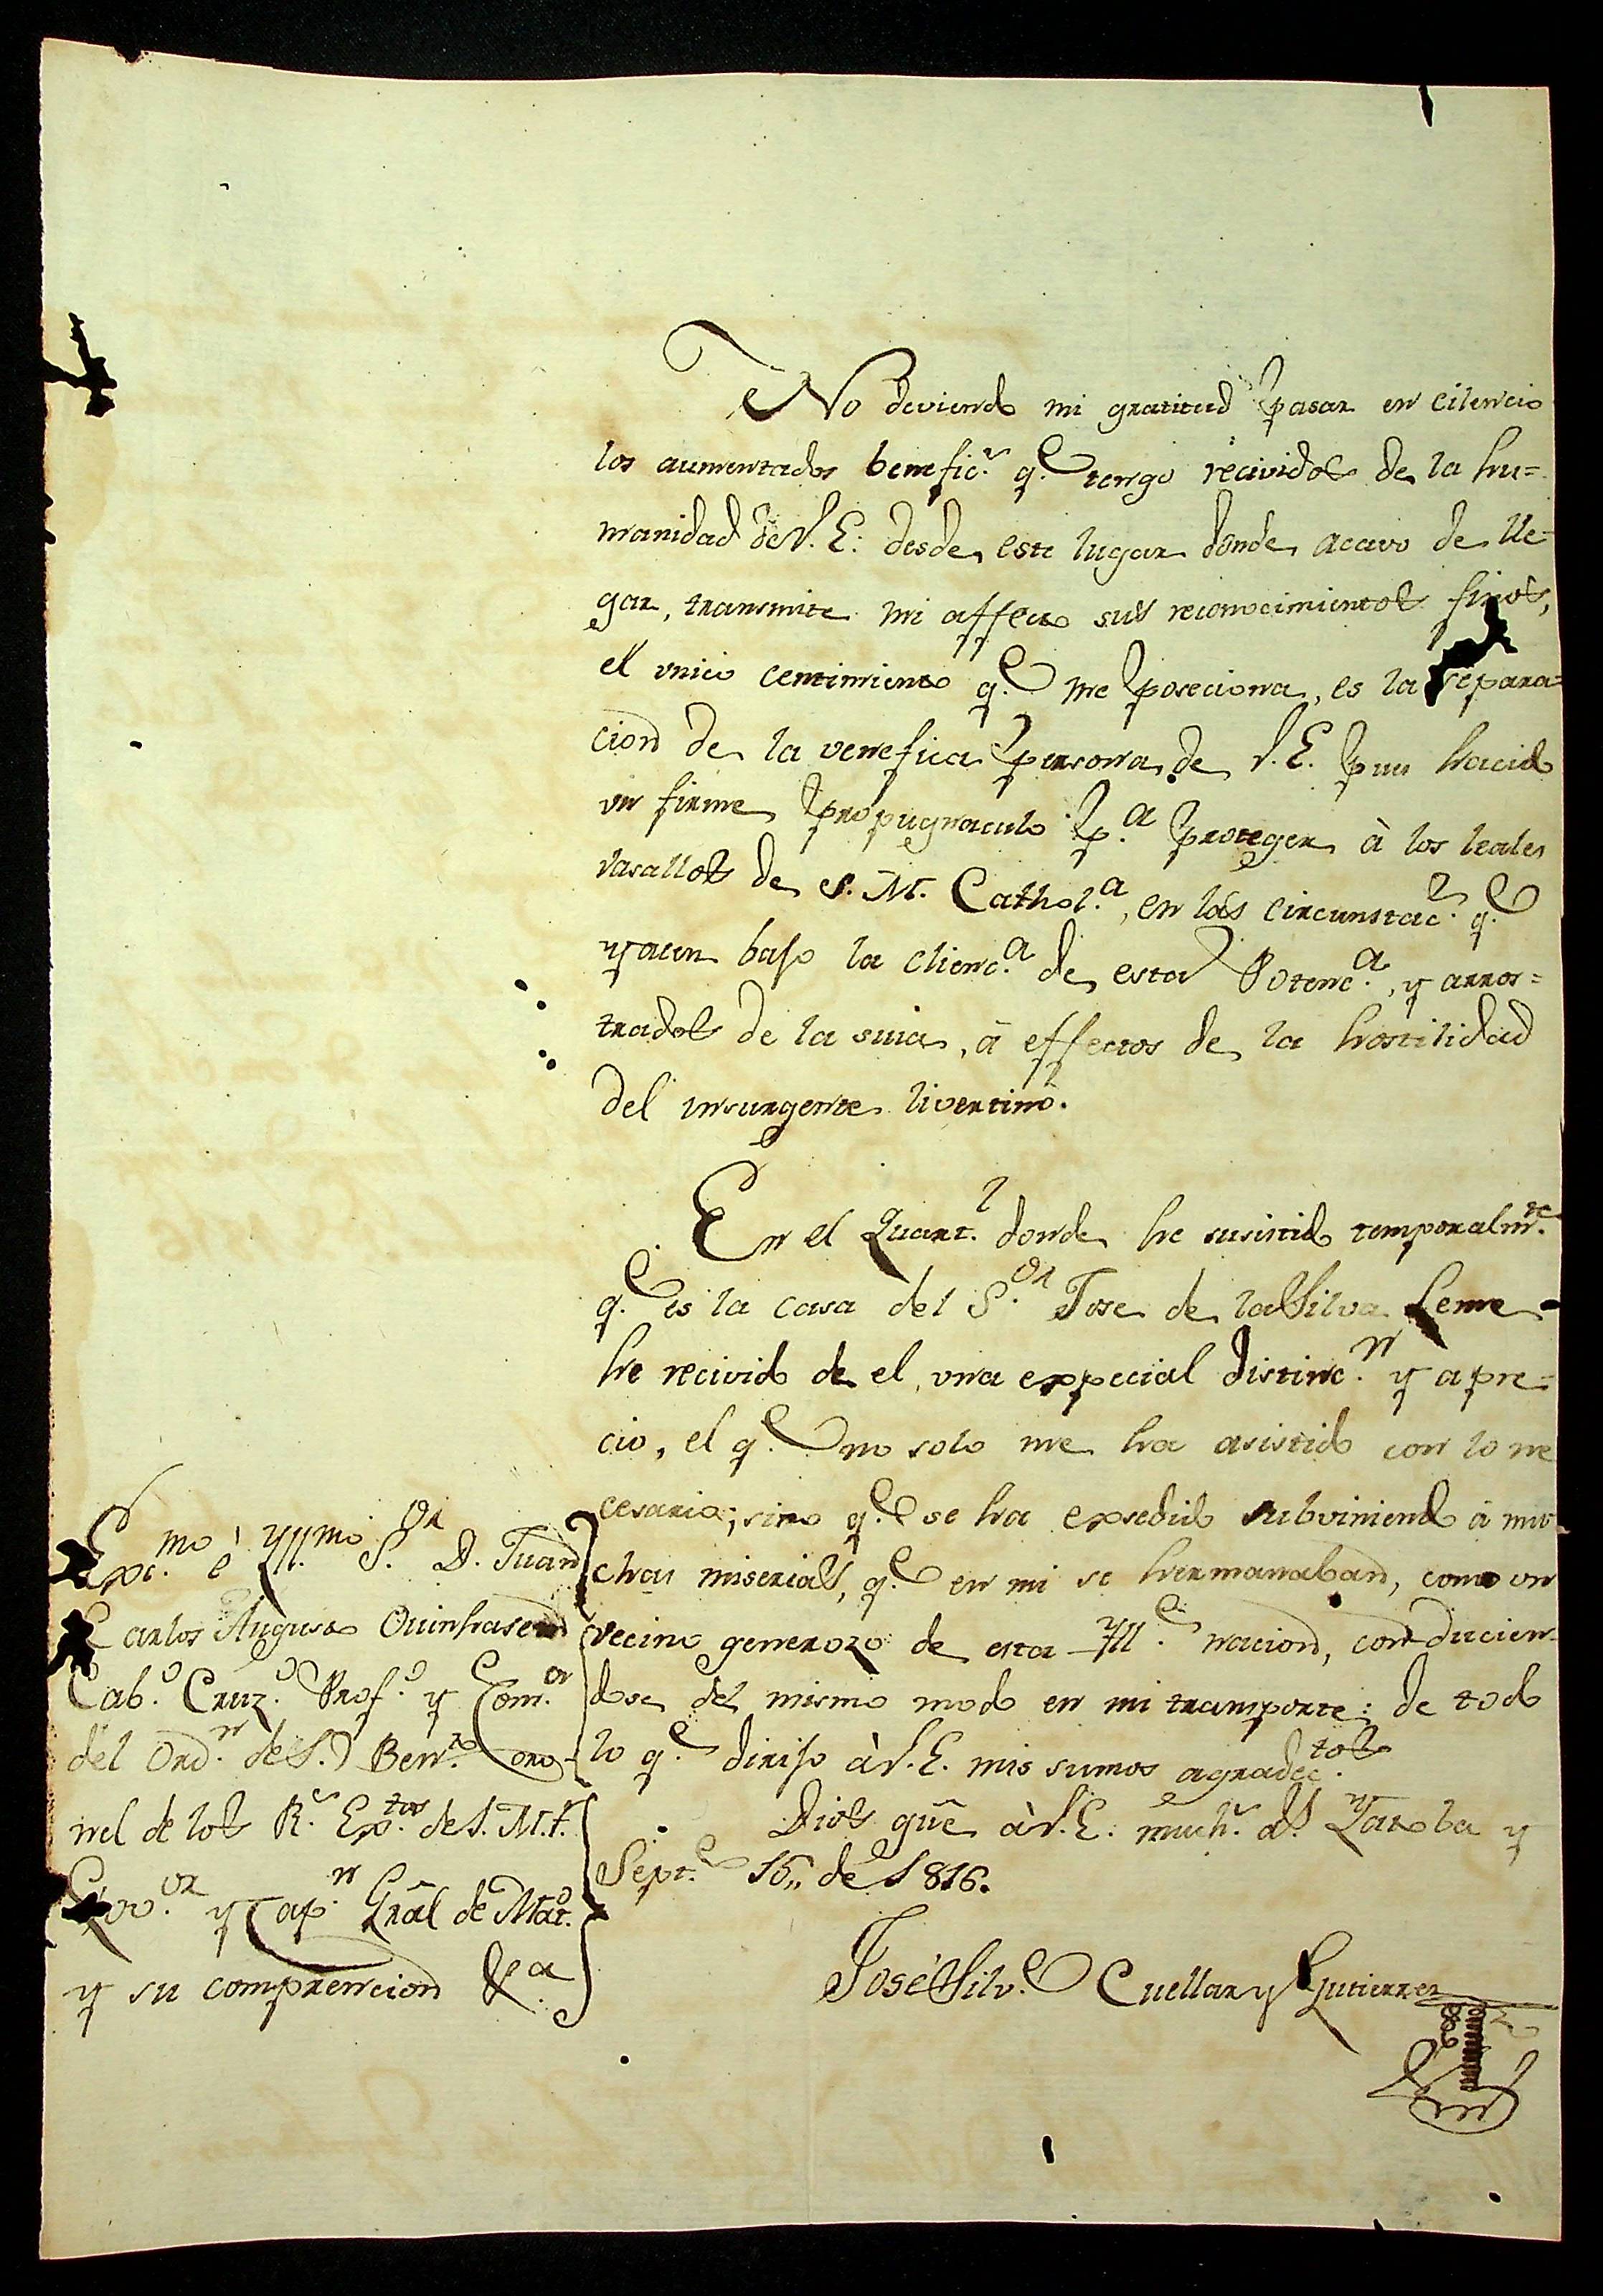 No deviendo mi gratitud pasar en cilencio
los aumentados benefic.s q.e tengo recividos de la hu=
manidad de V. E. desde este lugar donde acavo de lle=
gar, transmite mi affecto sus reconocimientos finos,
el unico centimiento q.e me poseciona, es la separa=
cion de la venefica persona de V. E. pues ha cido
un firme propugnaculo p.a proteger à los leales
vasallos de S. M. Cathol.a, en las circunstac.s q.e
yacen bajo la clienc.a de esta Potenc.a, y arros=
trados de la suia, á effectos de la hostilidad
del insurgente livertino.
En el Quart.l donde he susistido temporalm.te
q.e es la casa del S.or Jose de la Silva Leme
he recivido de el, una expecial distinc.n y apre=
cio, el q.e no solo me ha asistido con lo ne
cesario; sino q.e se ha expedido subviniendo á mu=
chas miserias, q.e en mi se hermanaban, como un
vecino generozo de esta Ill.e nacion, conducien=
dose del mismo modo en mi transporte: de todo
lo q.e dirijo à V. E. mis sumos agradec.tos
Dios gue à V. E. much.s a.s y
Sept.e 15,, de 1816.
José Silv.e Cuellar y Gutierrez
Exc.mo è Yll.mo S.or D. Juan
Carlos Augusto Ouinhasend
Cab.o Cruz.o Prof.o y Com.or
del Ord.n de S.n Ben.to Coro=
nel de los R.s Ex.tos de S. M. F.
Gov.or y Cap.n Gral de Mat.o
y su comprencion &.a